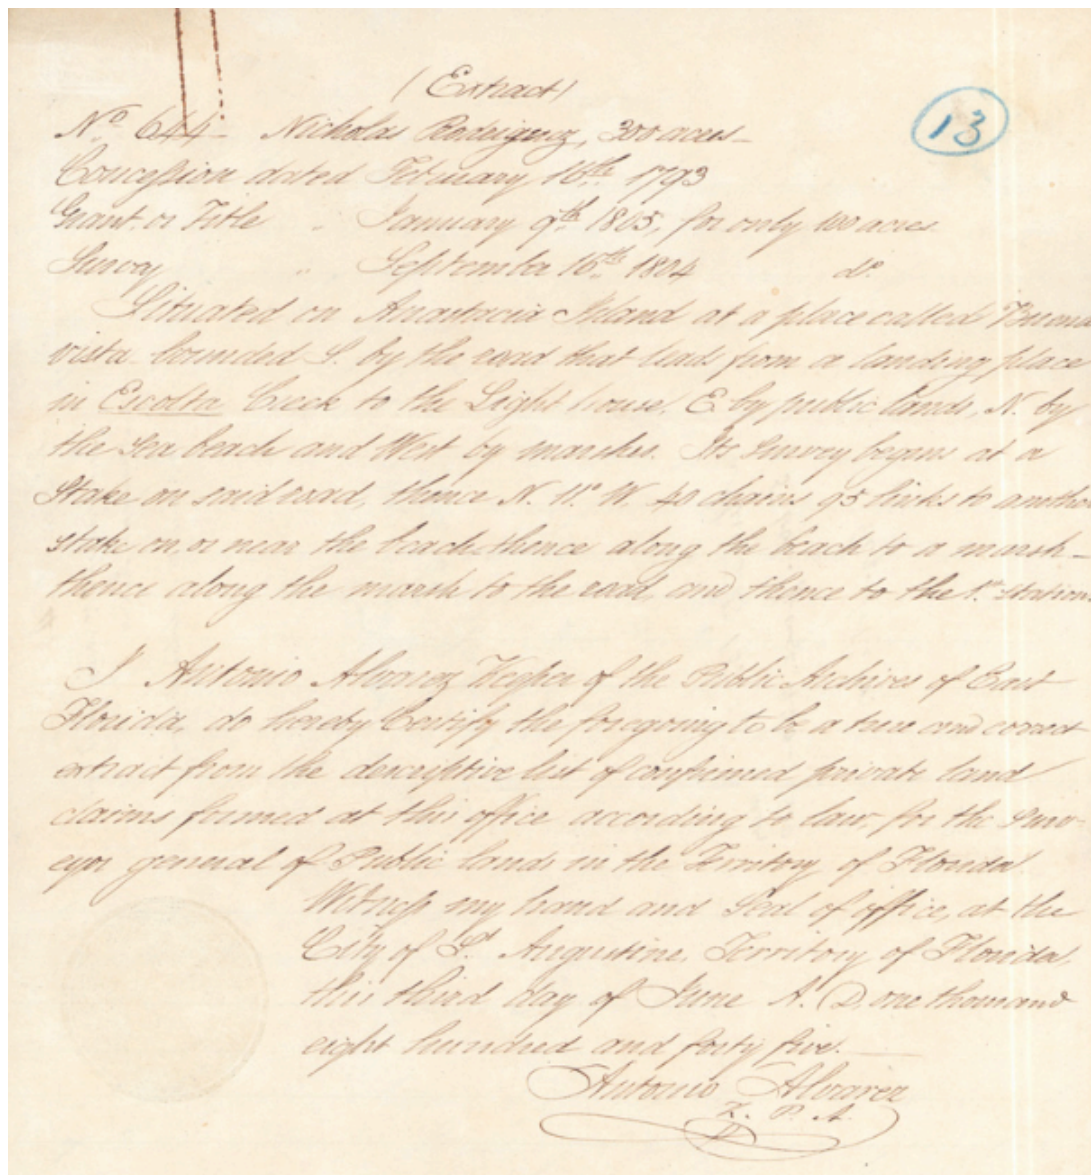 (Extract)
13
No 644 - Nicholas Rodriguez, 300 acres -
Concession dated February 16th 1793
Grant or Title " January 9th 1805, for only 100 acres
Survey " September 16th 1804 do.
Situated on Anastacia Island at a place called Buena
vista bounded S. by the road that leads from a landing place
in Escolta Creek to the Light house, E. by public lands, N. by
the sea beach and West by marshes. Its Survey begins at a
Stake on said road, thence N. 11° W. 40 chains 95 links to another
stake on or near the beach thence along the beach to a marsh -
thence along the marsh to the road and thence to the 1st station.
I Antonio Alvarez Keeper of the Public Archives of East
Florida, do hereby Certify the foregoing to be a true and correct
extract from the descriptive list of confirmed private land
claims formed at this office according to law, for the Surv-
eyor general of Public lands in the Territory of Florida
Witness my hand and Seal of office, at the
City of St Augustine Territory of Florida,
this third day of June A. D. one thousand
eight hundred and forty five.
Antonio Alvarez
K. P. A.